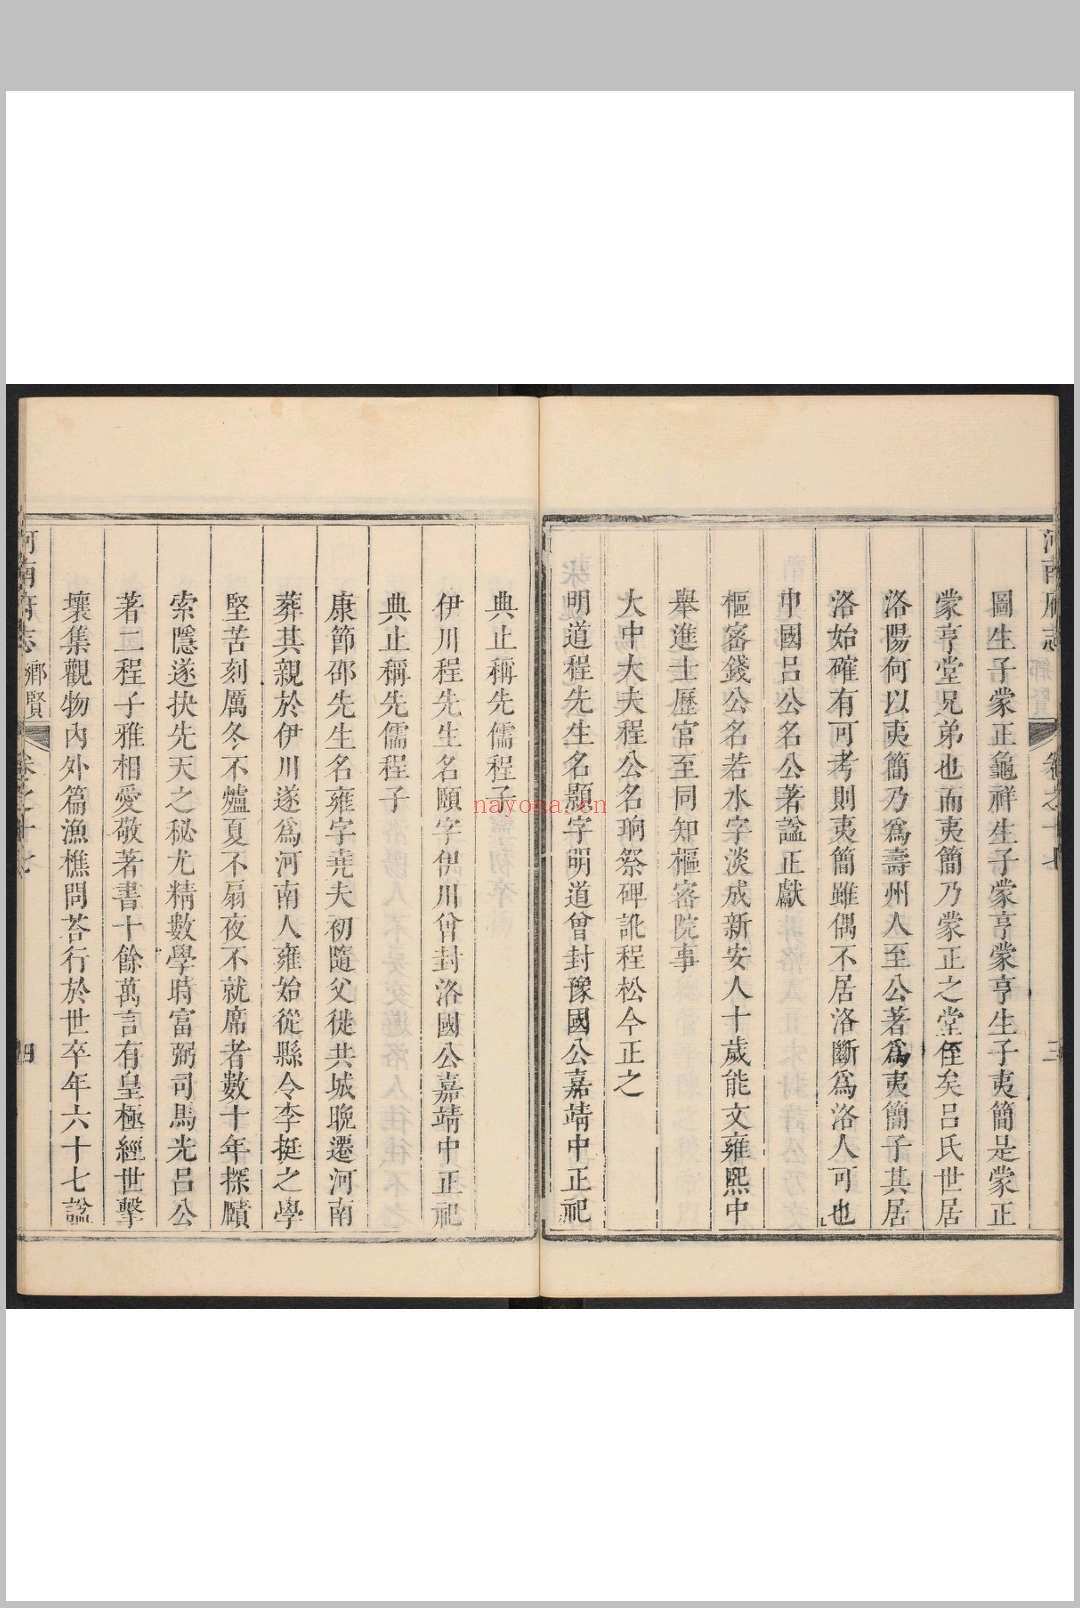 圖生子蒙正龜祥生子蒙亨蒙亨生子夷簡是蒙正
蒙亨堂兄弟也而夷簡乃蒙正之堂侄矣呂氏世居
洛陽何以夷簡乃爲壽州人至公著爲夷簡子其居
洛始確有可考則夷簡雖偶不居洛斷爲洛人可也
申國呂公名公著諡正獻
樞密錢公名若水字淡成新安人十歲能文雍熙中
舉進士歷官至同知樞密院事
大中大夫程公名珦祭碑訛程松今正之
明道程先生名顥字明道曾封豫國公嘉靖中正祀
典止稱先儒程子
伊川程先生名頤字伊川曾封洛國公嘉靖中正祀
典止稱先儒程子
康節邵先生名雍字堯夫初隨父徙共城晚遷河南
葬其親於伊川遂爲河南人雍始從縣令李挺之學
堅苦刻厲冬不爐夏不扇夜不就席者數十年探賾
索隱遂抉先天之秘尤精數學時富弼司馬光呂公
著二程子雅相愛敬著書十餘萬言有皇極經世擊
壤集觀物內外篇漁樵問荅行於世卒年六十七諡
河南府志 鄉賢 卷之十七 四
nayona.cn